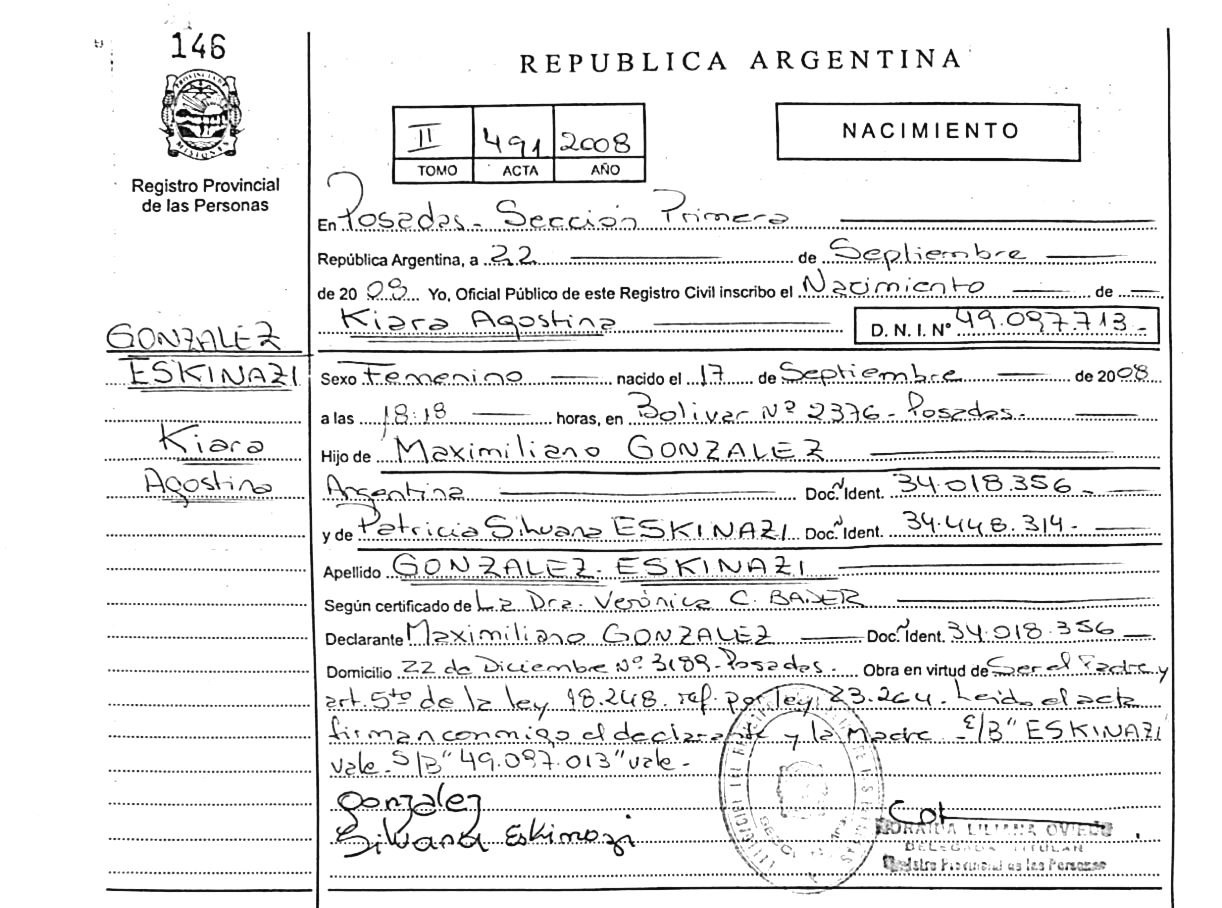 146
PROVINCIA DE MISIONES
Registro Provincial
de las Personas
GONZALEZ
ESKINAZI
Kiara
Agostina
REPUBLICA ARGENTINA
II 491 2008
TOMO ACTA AÑO
NACIMIENTO
En Posadas - Sección Primera
República Argentina, a 22 de Septiembre
de 2008 Yo, Oficial Público de este Registro Civil inscribo el Nacimiento de
Kiara Agostina D. N. I. Nº 49.097.713-
Sexo Femenino nacido el 17 de Septiembre de 2008
a las 18:18 horas, en Bolivar Nº 2376 - Posadas-
Hijo de Maximiliano GONZALEZ
Argentina Doc. Ident. 34.018.356-
y de Patricia Silvana ESKINAZI Doc. Ident. 34.448.314-
Apellido GONZALEZ - ESKINAZI
Según certificado de La Dra. Verónica C. BADER
Declarante Maximiliano GONZALEZ Doc. Ident. 34.018.356
Domicilio 22 de Diciembre Nº 3189-Posadas- Obra en virtud de Ser el Padre y
art. 5to de la ley 18.248. ref. por ley 23.264. Leido el acta
firman conmigo el declarante y la Madre - E/B" ESKINAZI
vale - S/B" 49.097.013" vale -
Gonzalez
Silvana Eskinazi
LILIANA OVIEDO
DELEGADA TITULAR
Registro Provincial de las Personas